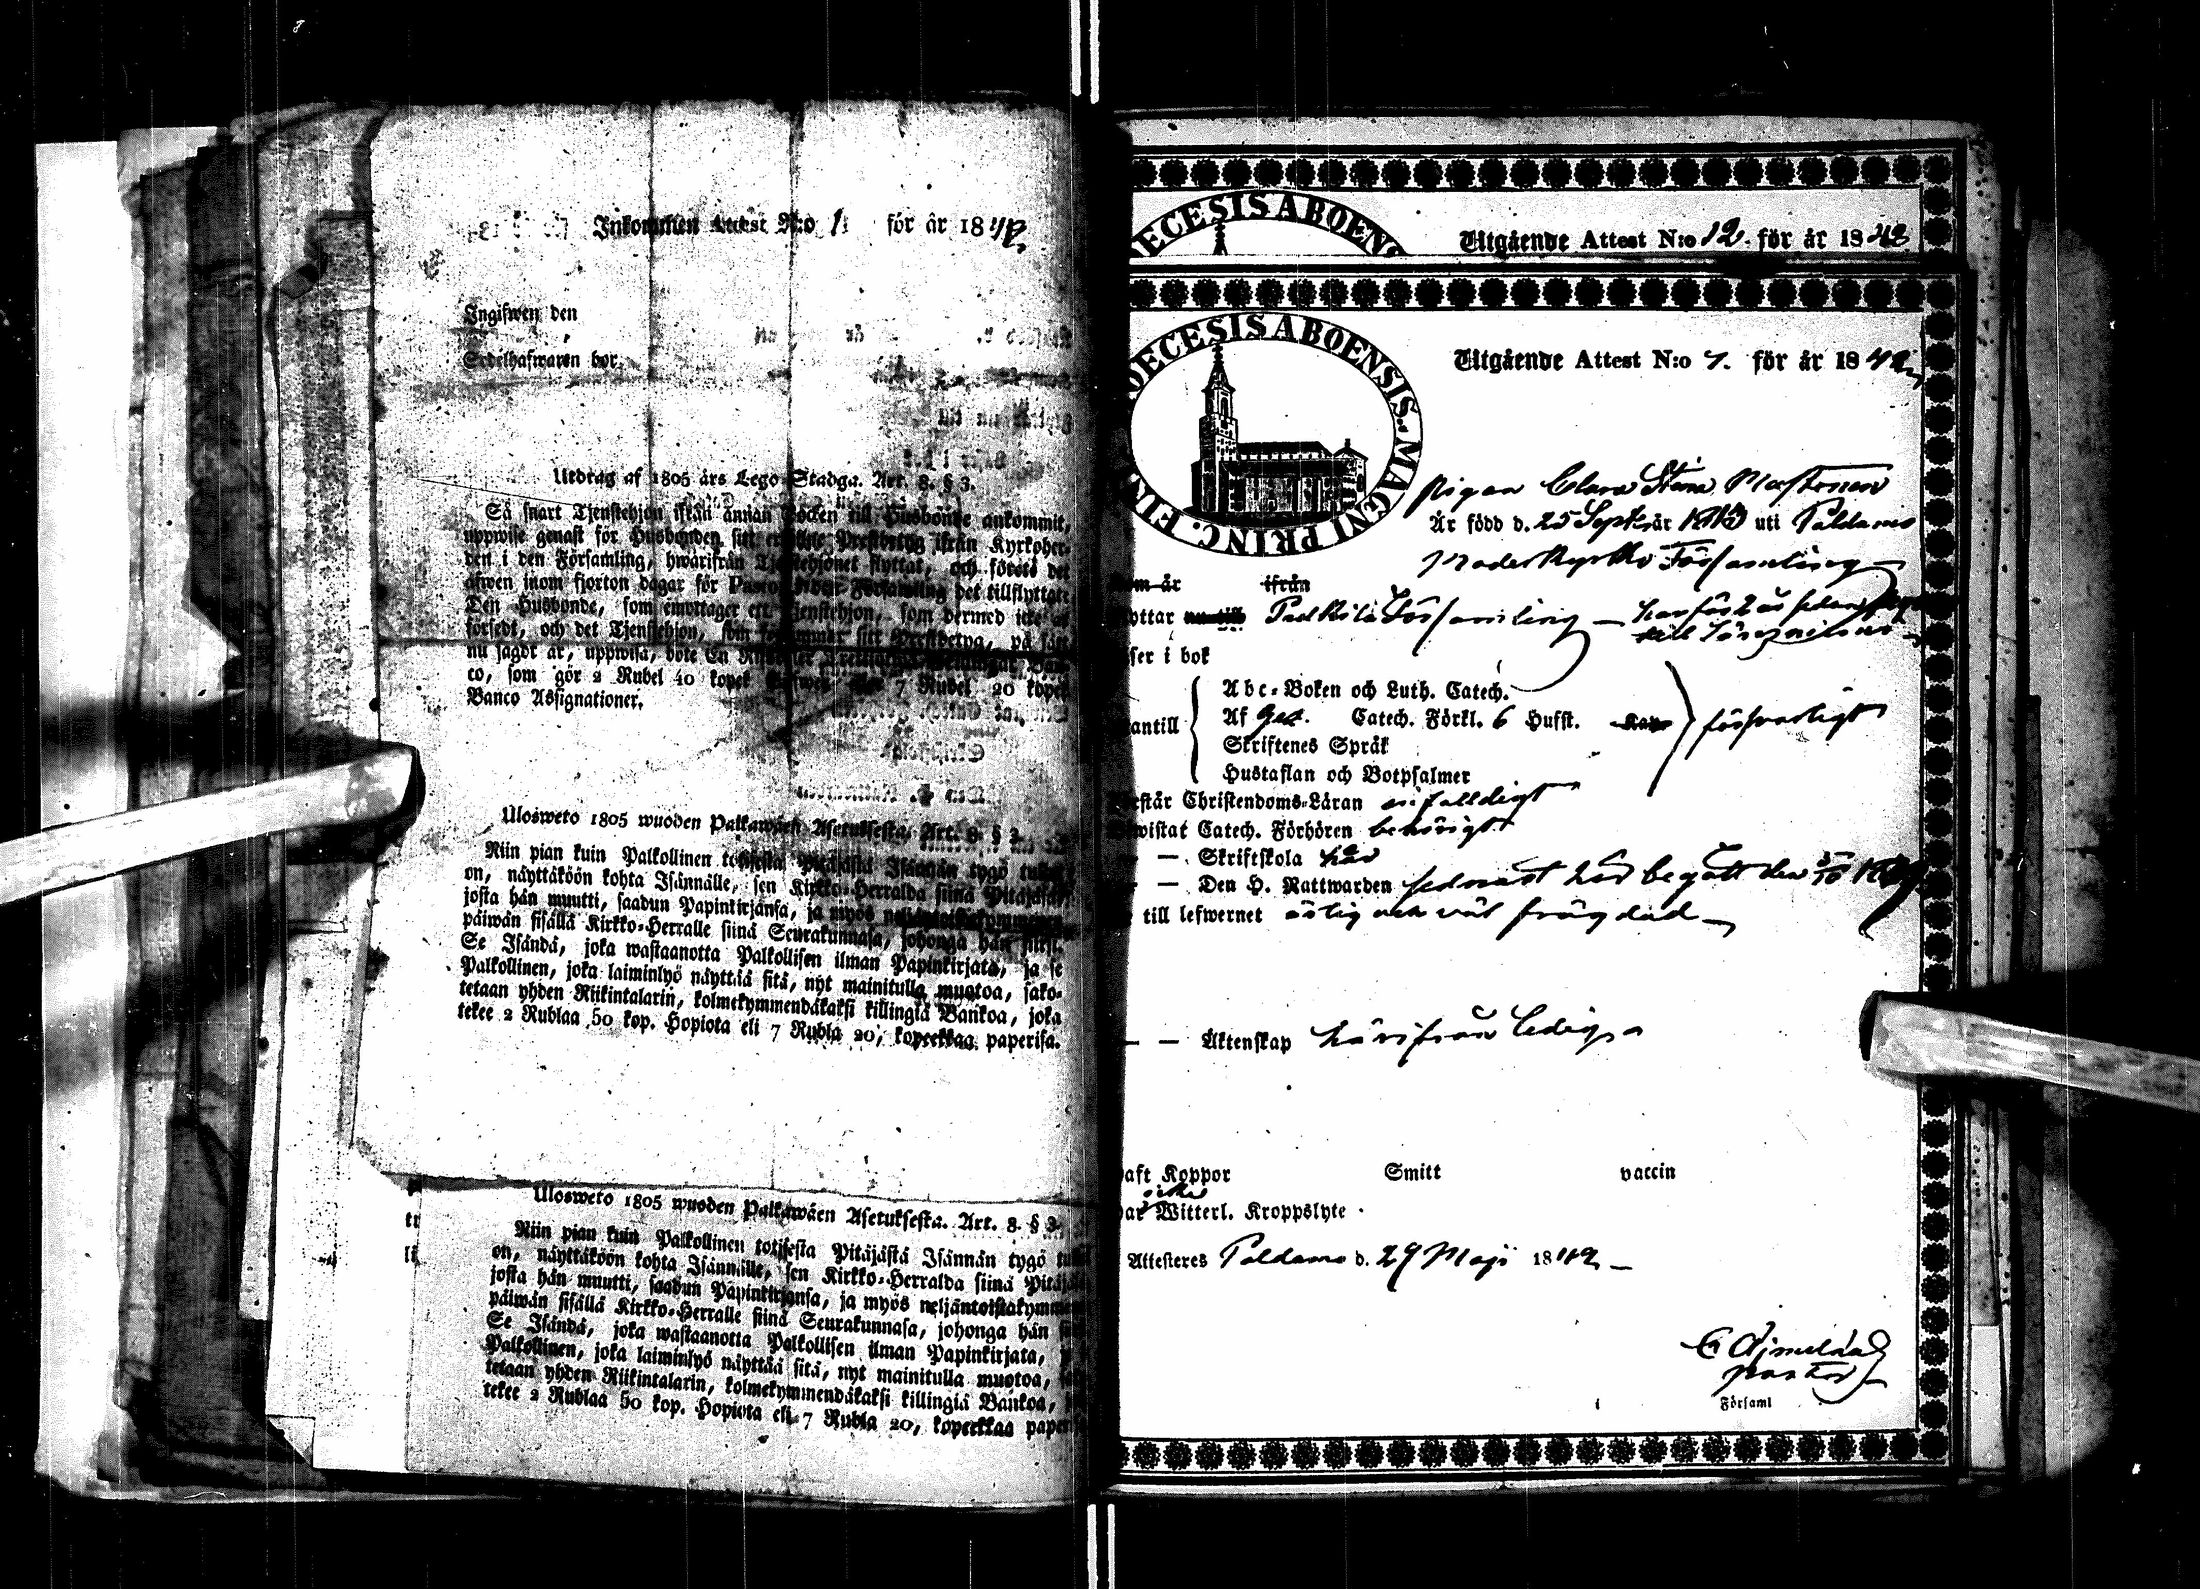 Inkommen Attest N:o 1. för år 1842.
Ingifwen den
Sedelhafwaren bor
Utdrag af 1805 års Lego Stadga. Art. 8. § 3.
Så snart Tjenstehjon ifrån annan Socken till Husbonde ankommit,
uppwise genast för Husbonden sitt erhållne Prestbetyg ifrån Kyrkoher-
den i den Församling, hwarifrån Tjenstehjonet flyttat, och förete det
äfwen inom fjorton dagar för Pastor i den Församling det tillflyttat.
Den Husbonde, som emottager ett Tjenstehjon, som dermed icke är
försedt, och det Tjenstehjon, som försummar sitt Prestbetyg, på sätt
nu sagdt är, uppwisa, böte En Riksdaler
co, som gör 2 Rubel 40 kopek 7 Rubel 20 kopek
Banco Assignationer.
Ulosweto 1805 wuoden Palkawäen Asetuksesta. Art. 8. § 3.
Niin pian kuin Palkollinen toisesta Pitäjästä Isännän tygö tullut
on, näyttäköön kohta Isännälle, sen Kirkko-Herralda siinä Pitäjäsä,
josta hän muutti, saadun Papinkirjansa, ja myös neljäntoistakymmenen
päiwän sisällä Kirkko-Herralle siinä Seurakunnasa, johonga hän siirsi.
Se Isändä, joka wastaanotta Palkollisen ilman Papinkirjata, ja se
Palkollinen, joka laiminlyö näyttää sitä, nyt mainitulla muotoa, sako-
tetaan yhden Riikintalarin, kolmekymmendäkaksi killingiä Bankoa, joka
tekee 2 Rublaa 50 kop. Hopiota eli 7 Rubla 20, kopeekkaa paperisa.
Ulosweto 1805 wuoden Palkawäen Asetuksesta. Art. 8. § 3.
Niin pian kuin Palkollinen toisesta Pitäjästä Isännän tygö
on, näyttäköön kohta Isännälle, sen Kirkko-Herralda siinä
josta hän muutti, saadun Papinkirjansa, ja myös neljäntoistakymmen
päiwän sisällä Kirkko-Herralle siinä Seurakunnasa, johonga hän
Se Isändä, joka wastaanotta Palkollisen ilman Papinkirjata,
Palkollinen, joka laiminlyö näyttää sitä, nyt mainitulla muotoa,
tetaan yhden Riikintalarin, kolmekymmendäkaksi killingiä Bankoa,
tekee 2 Rublaa 50 kop. Hopiota eli 7 Rubla 20, kopeekkaa
OECESIS ABOENS
Utgående Attest N:o 12. för år 1842
OECESIS ABOENSIS. MAGNI PRINC. FIN
Utgående Attest N:o 7. för år 1842
Pigan Clara Stina
Är född d. 25 Sept. år uti Paldamo
Moderkyrko Församling
om år ifrån
yttar nu till Församling – har för
till
ser i bok
Abc-Boken och Luth. Catech.
antill Af Catech. Förkl. 6 Hufst. kan försvarligt
Skriftenes Språk
Hustaflan och Botpsalmer
rstår Christendoms-Läran enfalldigt
wistat Catech. Förhören behörigt
– Skriftskola här
– Den H. Nattwarden sednast här begått den
till lefwernet ärlig och väl frägdad
– – Äktenskap härifrån ledig
aft Koppor Smitt vaccin
icke
ar Witterl. Kroppslyte
Attesteres Paldamo d. 29 Maji 1842
Pastor
Församl